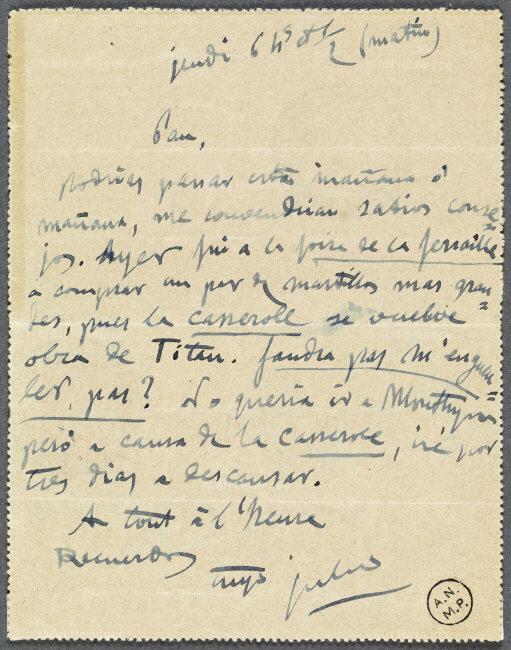 jeudi 6 hs et 1/2 (matin)
Pau,
podrias pasar esta mañana ó
mañana, me convendrian sabios conse=
jos. Ayer fui a la foire de la ferraille
a comprar un par de martillos mas gran=
des, pues la casserole se vuelve
obra de Titan. faudra pas m'engueu=
ler, pas? No queria ir a Monthyon
pero a causa de la casserole, iré por
tres dias a descansar.
A tout à l'heure
Recuerdos
tuyo Julio
A.N.
M.P.